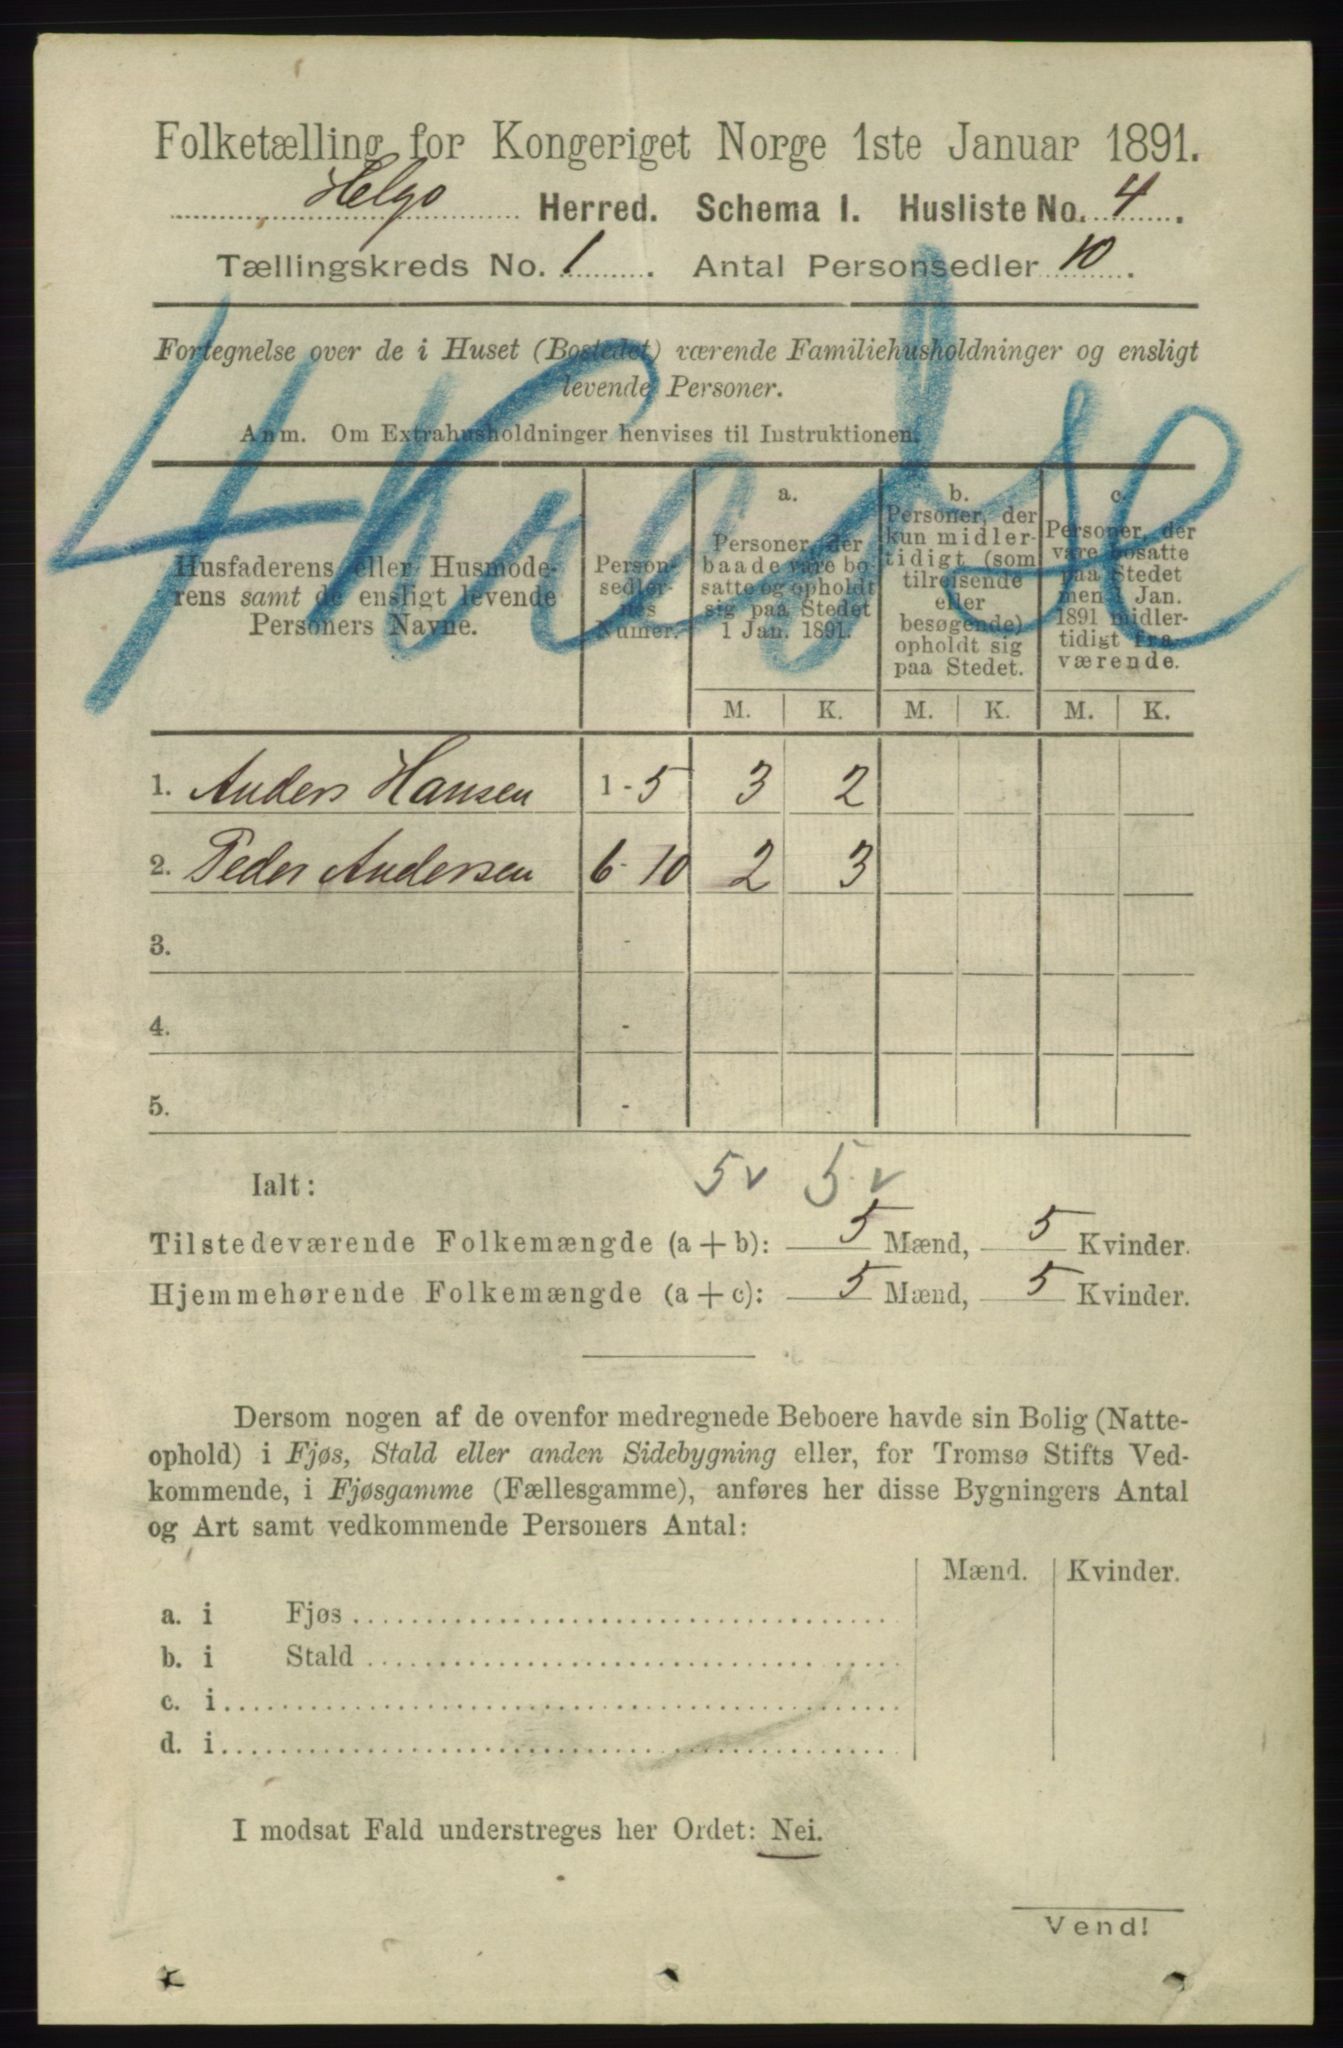 Folketælling for Kongeriget Norge 1ste Januar 1891.
Helgø Herred. Schema I. Husliste No. 4.
Tællingskreds No. 1. Antal Personsedler 10.
Fortegnelse over de i Huset (Bostedet) værende Familiehusholdninger og ensligt
levende Personer.
Anm. Om Extrahusholdninger henvises til Instruktionen.
4 Kredse
Husfaderens eller Husmode-
rens samt de ensligt levende
Personers Navne.
Person-
sedler-
nes
Numer.
a.
Personer, der
baade vare bo-
satte og opholdt
sig paa Stedet
1 Jan. 1891.
b.
Personer, der
kun midler-
tidigt (som
tilreisende
eller
besøgende)
opholdt sig
paa Stedet.
c.
Personer, der
vare bosatte
paa Stedet
men 1 Jan.
1891 midler-
tidigt fra-
værende.
M. K. M. K. M. K.
1. Anders Hansen 1-5 3 2
2. Peder Andersen 6-10 2 3
3. -
4. -
5. -
Ialt: 5 v 5 v
Tilstedeværende Folkemængde (a + b): 5 Mænd, 5 Kvinder.
Hjemmehørende Folkemængde (a + c): 5 Mænd, 5 Kvinder.
Dersom nogen af de ovenfor medregnede Beboere havde sin Bolig (Natte-
ophold) i Fjøs, Stald eller anden Sidebygning eller, for Tromsø Stifts Ved-
kommende, i Fjøsgamme (Fællesgamme), anføres her disse Bygningers Antal
og Art samt vedkommende Personers Antal:
Mænd. Kvinder.
a. i Fjøs
b. i Stald
c. i
d. i
I modsat Fald understreges her Ordet: Nei.
Vend!